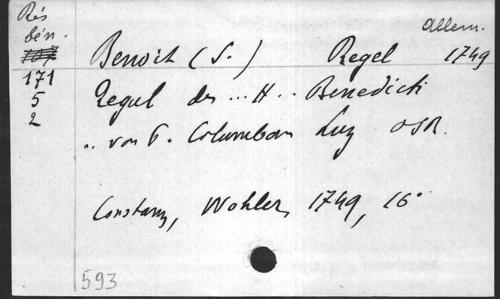 Rés allem.
bén.
Benoit (S.) Regel 1749
171 Regul des ... H .. Benedicti
5
2 .. von P. Columban Luz OSB.
Constanz, Wohler, 1749, 16°
593